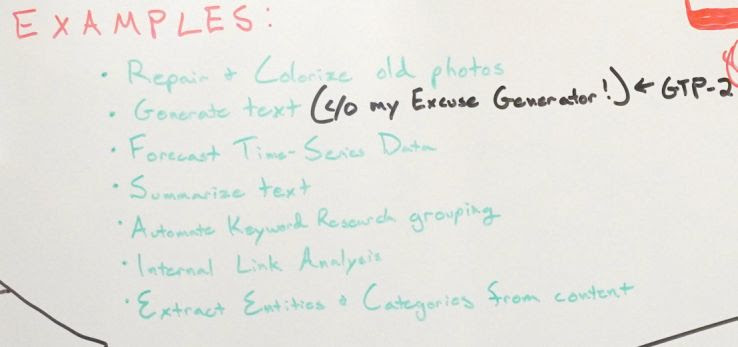 EXAMPLES:
• Repair & Colorize old photos
• Generate text (c/o my Excuse Generator!) ← GTP-2
• Forecast Time-Series Data
• Summarize text
• Automate Keyword Research grouping
• Internal Link Analysis
• Extract Entities & Categories from content